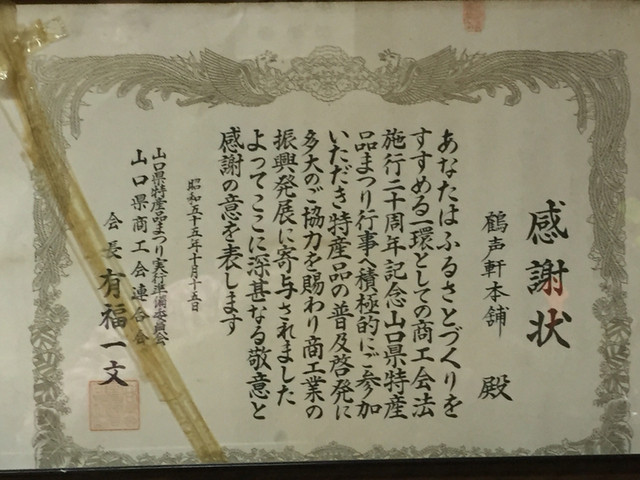 感謝状
鶴声軒本舗 殿
あなたはふるさとづくりを
すすめる一環としての商工会法
施行二十周年記念山口県特産
品まつり行事へ積極的にご参加
いただき特産品の普及啓発に
多大のご協力を賜わり商工業の
振興発展に寄与されました
よってここに深甚なる敬意と
感謝の意を表します
昭和五十五年十月十五日
山口県特産品まつり実行準備委員会
山口県商工会連合会
会長 有福一文